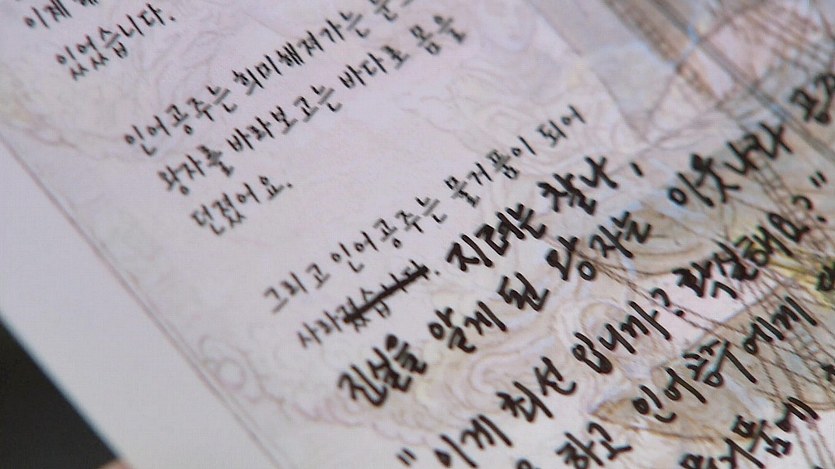 이제
있었습니다.
인어공주는 희미해져가는 눈으
왕자를 바라보고는 바다로 몸을
던졌어요.
그리고 인어공주는 물거품이 되어
사라졌습니다. 지려는 찰나,
진실을 알게 된 왕자는 이웃나라 공
"이게 최선 입니까? 확실해요?"
하고 인어공주에게
거품에